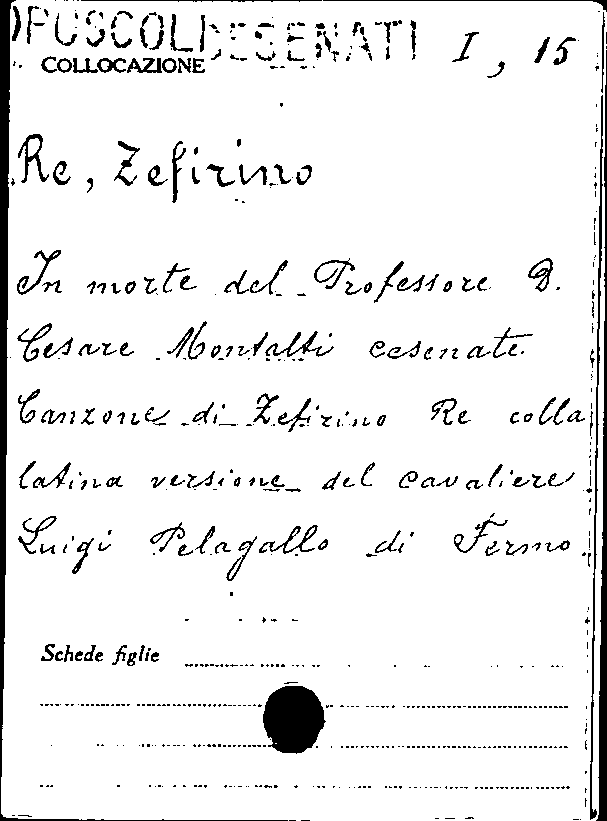 OPUSCOLI CESENATI I, 15
COLLOCAZIONE
Re, Zefirino
In morte del Professore D.
Cesare Montalti cesenate.
Canzone di Zefirino Re colla
latina versione del cavaliere
Luigi Pelagallo di Fermo.
Schede figlie